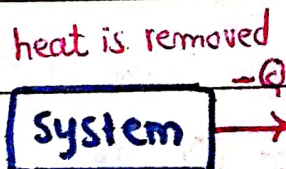 heat is removed
-Q
System